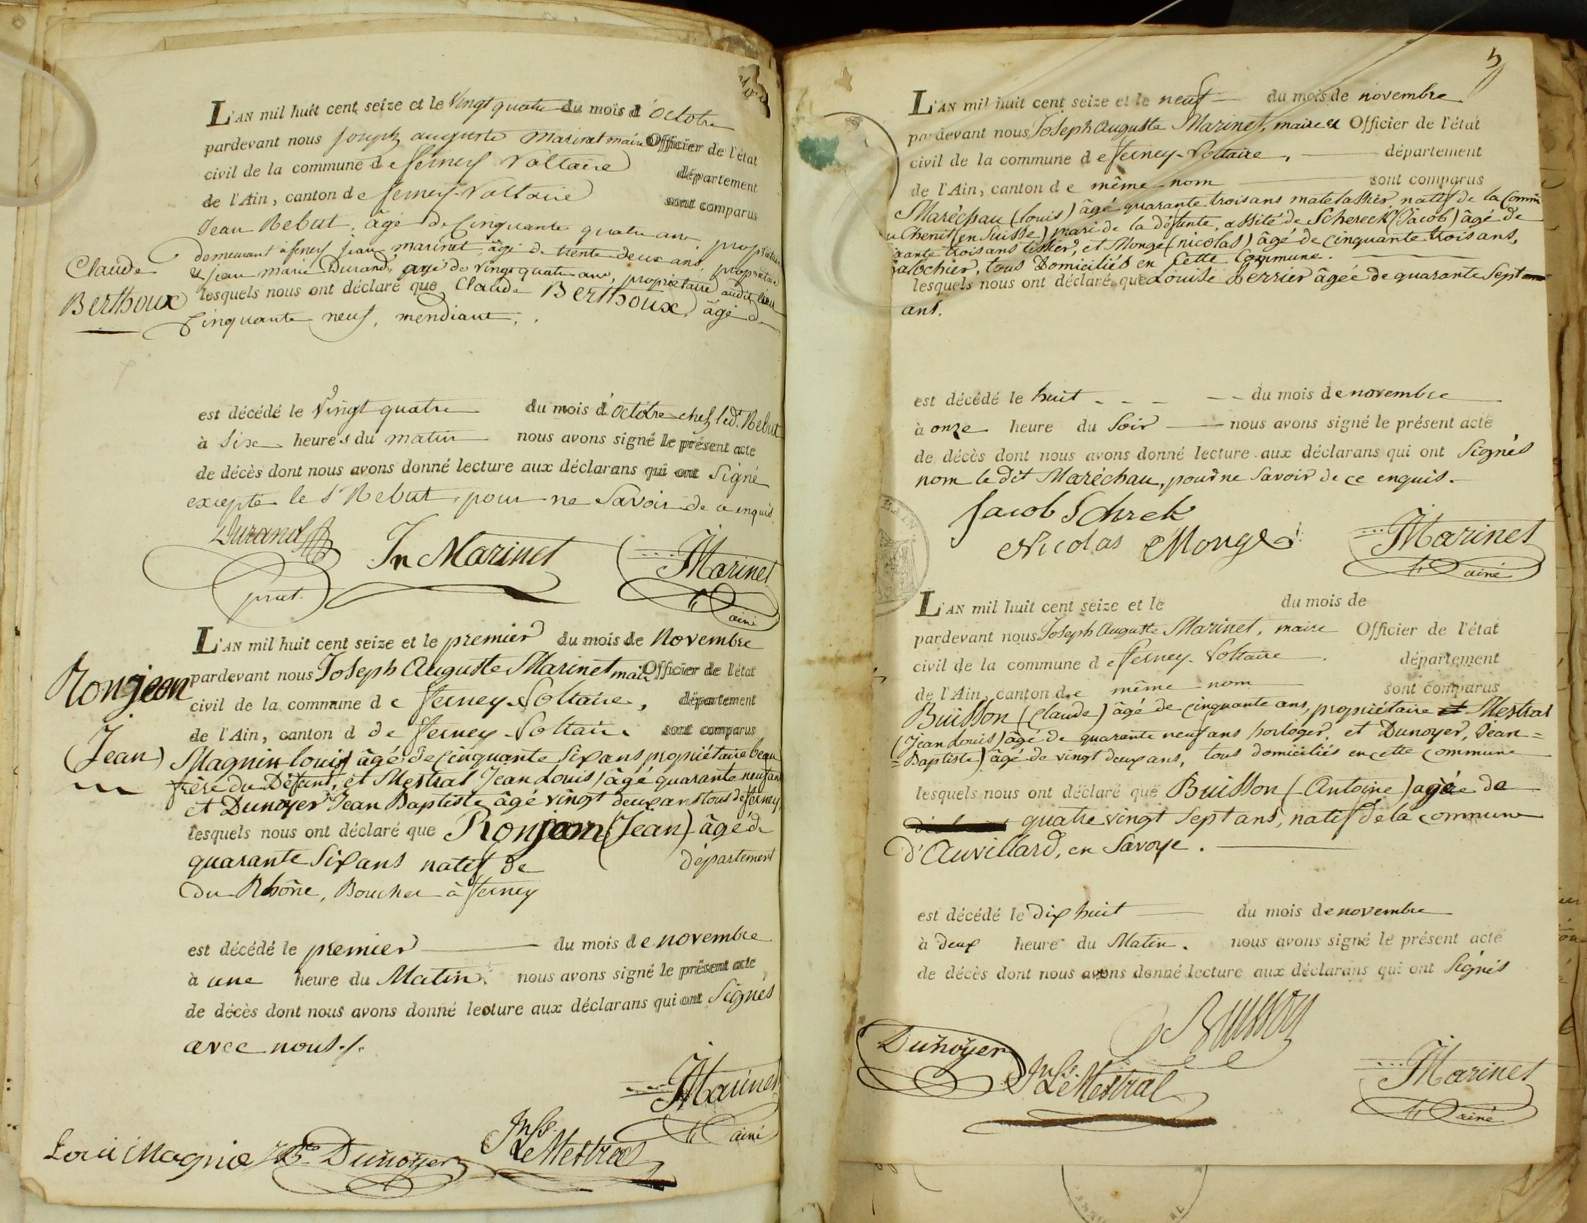 L'AN mil huit cent seize et le Vingt quatre du mois d'octobre
pardevant nous Joseph auguste Marinet maire Officier de l'état
civil de la commune de ferney Voltaire département
de l'Ain, canton de ferney Voltaire sont comparus
Jean Rebut, âgé de Cinquante quatre ans, propriétaire
demeurant à ferney jean marinet, âgé de trente deux ans, propriétaire
& jean marie Durand, agé de vingt quatre ans, propriétaire audit lieu
Claude
Berthoux
lesquels nous ont déclaré que Claude Berthoux, âgé de
Cinquante neuf, mendiant,
est décédé le Vingt quatre du mois d'octobre chez led. Rebut
à Six heures du matin nous avons signé le présent acte
de décès dont nous avons donné lecture aux déclarans qui ont Signé
excepté le Sr Rebut, pour ne Savoir de ce enquis
Durand
Jn Marinet
J Marinet
ainé
L'AN mil huit cent seize et le premier du mois de Novembre
pardevant nous Joseph Auguste Marinet maire Officier de l'état
Ronjeon
civil de la commune de ferney-Voltaire, département
de l'Ain, canton d de ferney-Voltaire sont comparus
(Jean)
Magnin louis) âgé de Cinquante Six ans propriétaire beau
frère du Défunt, et Mestral Jean Louis) âgé quarante neuf ans
et Dunoyer Jean Baptiste âgé vingt deux ans tous de ferney
lesquels nous ont déclaré que Ronjeon (Jean) âgé de
quarante Six ans natif de département
du Rhône, Boucher à ferney
est décédé le premier du mois de novembre
à une heure du Matin nous avons signé le présent acte
de décès dont nous avons donné lecture aux déclarans qui ont Signés
avec nous./.
J Marinet
ainé
Loui Magnin
JBte Dunoyer
Jn Ls Le Mestral
5
L'AN mil huit cent seize et le neuf du mois de novembre
pardevant nous Joseph Auguste Marinet, maire et Officier de l'état
civil de la commune de ferney-Voltaire, département
de l'Ain, canton de même nom sont comparus
Maréchau (louis) âgé quarante trois ans matelassier, natif de la Comm
Chenit (en Suisse) mari de la défunte, assité de Schereck (Jacob) âgé de
rante trois ans tissier, et Monge (nicolas) âgé de cinquante trois ans,
alochier, tous Domiciliés en Cette Commune.
lesquels nous ont déclaré que Louise Perrier âgée de quarante Sept
ans.
est décédé le huit du mois de novembre
à onze heure du Soir nous avons signé le présent acte
de décès dont nous avons donné lecture aux déclarans qui ont Signés
nom le dit Maréchau, pour ne Savoir de ce enquis.
Jacob Schrek
Nicolas Monge
J Marinet
ainé
L'AN mil huit cent seize et le du mois de
pardevant nous Joseph Auguste Marinet, maire Officier de l'état
civil de la commune de ferney-Voltaire. département
de l'Ain, canton de même nom sont comparus
Buisson (Claude) âgé de cinquante ans, propriétaire et Mestral
(Jean Louis) âgé de quarante neuf ans horloger, et Dunoyer, Jean=
=Baptiste) âgé de vingt deux ans, tous domiciliés en cette commune
lesquels nous ont déclaré que Buisson (Antoine) agée de
quatre vingt Sept ans, natif de la commune
d'Auvillard, en Savoye.
est décédé le dix huit du mois de novembre
à deux heure du Matin. nous avons signé le présent acte
de décès dont nous avons donné lecture aux déclarans qui ont Signés
Buisson
Dunoyer
Jn Ls Le Mestral
J Marinet
ainé